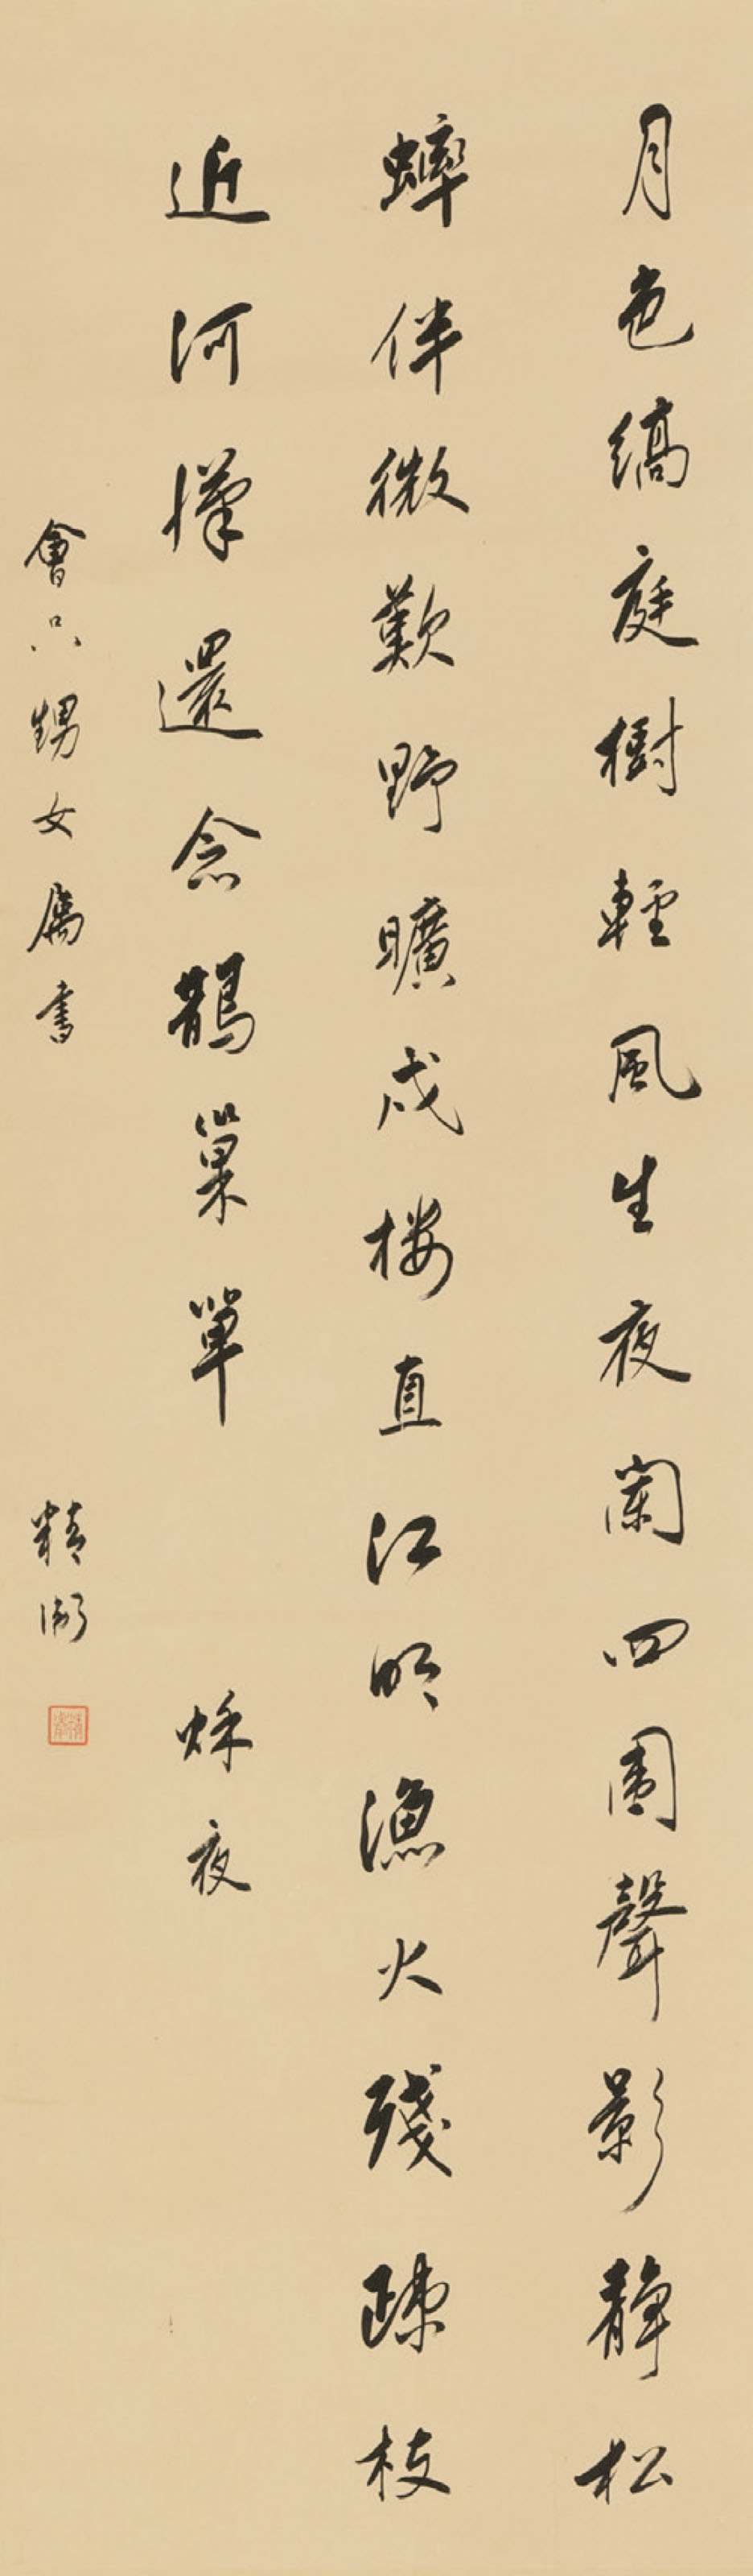 月色縞庭樹輕風生夜闌四圍聲影靜松
蟀伴微歎野曠戍楼直江明漁火殘疎枝
近河漢還念鵲巢單 秌夜
會只甥女屬書 精衛